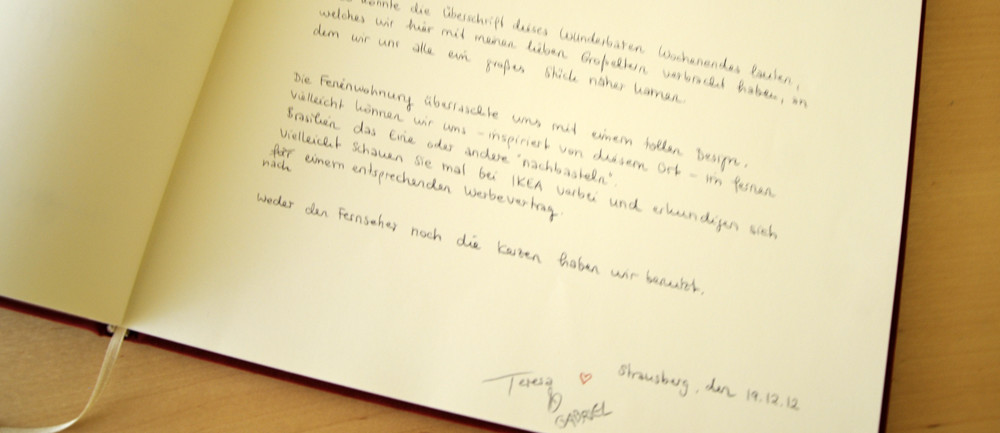 könnte die Überschrift dieses wunderbaren Wochenendes lauten,
welches wir hier mit meinen lieben Großeltern verbracht haben, an
dem wir uns alle ein großes Stück näher kamen.
Die Ferienwohnung überraschte uns mit einem tollen Design.
Vielleicht können wir uns - inspiriert von diesem Ort - im fernen
Brasilien das Eine oder andere "nachbasteln".
Vielleicht schauen Sie mal bei IKEA vorbei und erkundigen sich
nach einem entsprechenden Werbevertrag.
Weder den Fernseher noch die Kerzen haben wir benutzt.
Teresa ♡ Strausberg, den 19.12.12
GABRIEL